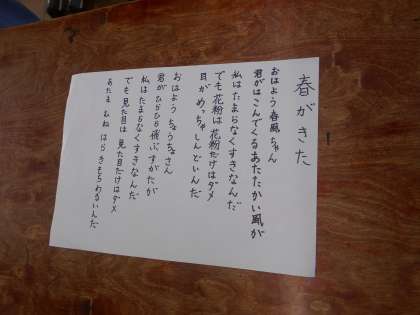 春がきた
おはよう春風ちゃん
君がはこんでくるあたたかい風が
私はたまらなくすきなんだ
でも花粉は 花粉だけはダメ
目がめっちゃ しんどいんだ
おはよう ちょうちょさん
君が ひらひら 飛ぶ すがたが
私は たまらなくすきなんだ
でも 見た目は 見た目だけはダメ
あたま むね はら きもちわるいんだ